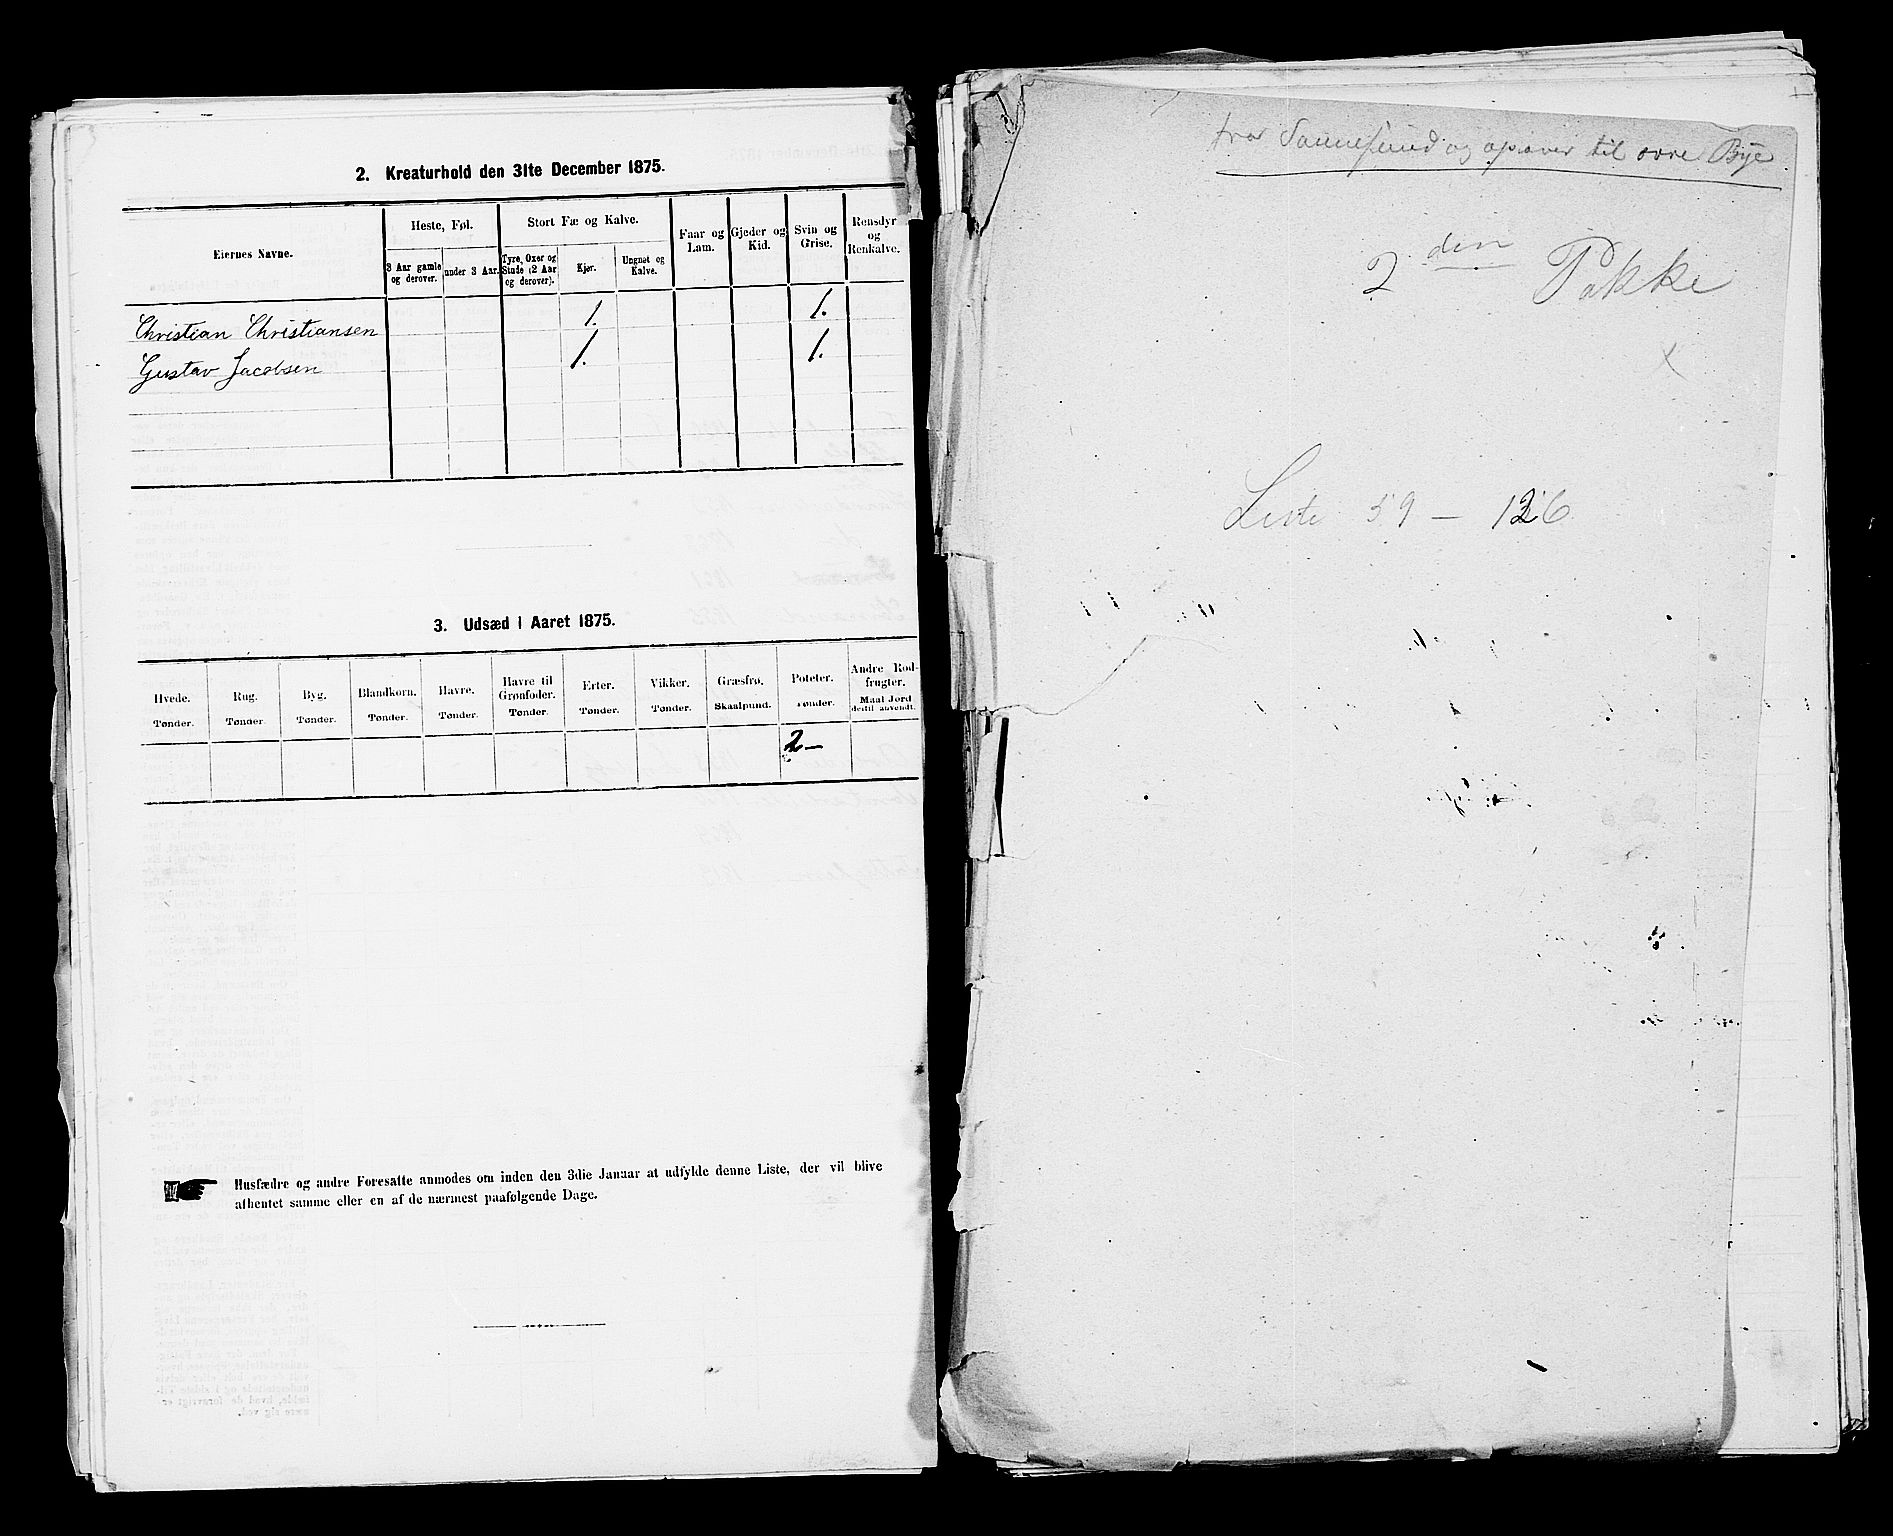 2. Kreaturhold den 31te December 1875.
Eiernes Navne.
Heste, Føl.
Stort Fæ og Kalve.
Faar og Lam.
Gjeder og Kid.
Svin og Grise.
Rensdyr og Renkalve.
3 Aar gamle og derover.
under 3 Aar.
Tyre, Oxer og Stude (2 Aar og derover).
Kjør.
Ungnøt og Kalve.
Christian Christiansen 1. 1.
Gustav Jacobsen 1. 1.
3. Udsæd i Aaret 1875.
Hvede. Tønder.
Rug. Tønder.
Byg. Tønder.
Blandkorn. Tønder.
Havre. Tønder.
Havre til Grønfoder. Tønder.
Erter. Tønder.
Vikker. Tønder.
Græsfrø. Skaalpund.
Poteter. Tønder.
Andre Rodfrugter. Maal Jord dertil anvendt.
2—
Husfædre og andre Foresatte anmodes om inden den 3die Januar at udfylde denne Liste, der vil blive
afhentet samme eller en af de nærmest paafølgende Dage.
fra Sannesund og opover til øvre Bye
2den Pakke
x
Liste 59 — 126